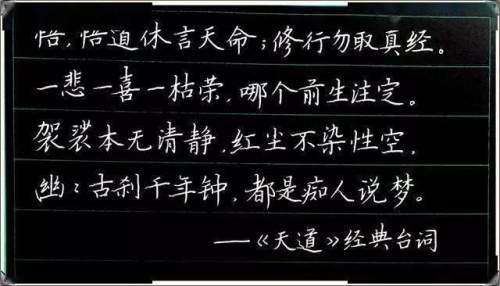 悟，悟道休言天命；修行勿取真经。
一悲一喜一枯荣，哪个前生注定。
袈裟本无清静，红尘不染性空，
幽：古刹千年钟，都是痴人说梦。
——《天道》经典台词